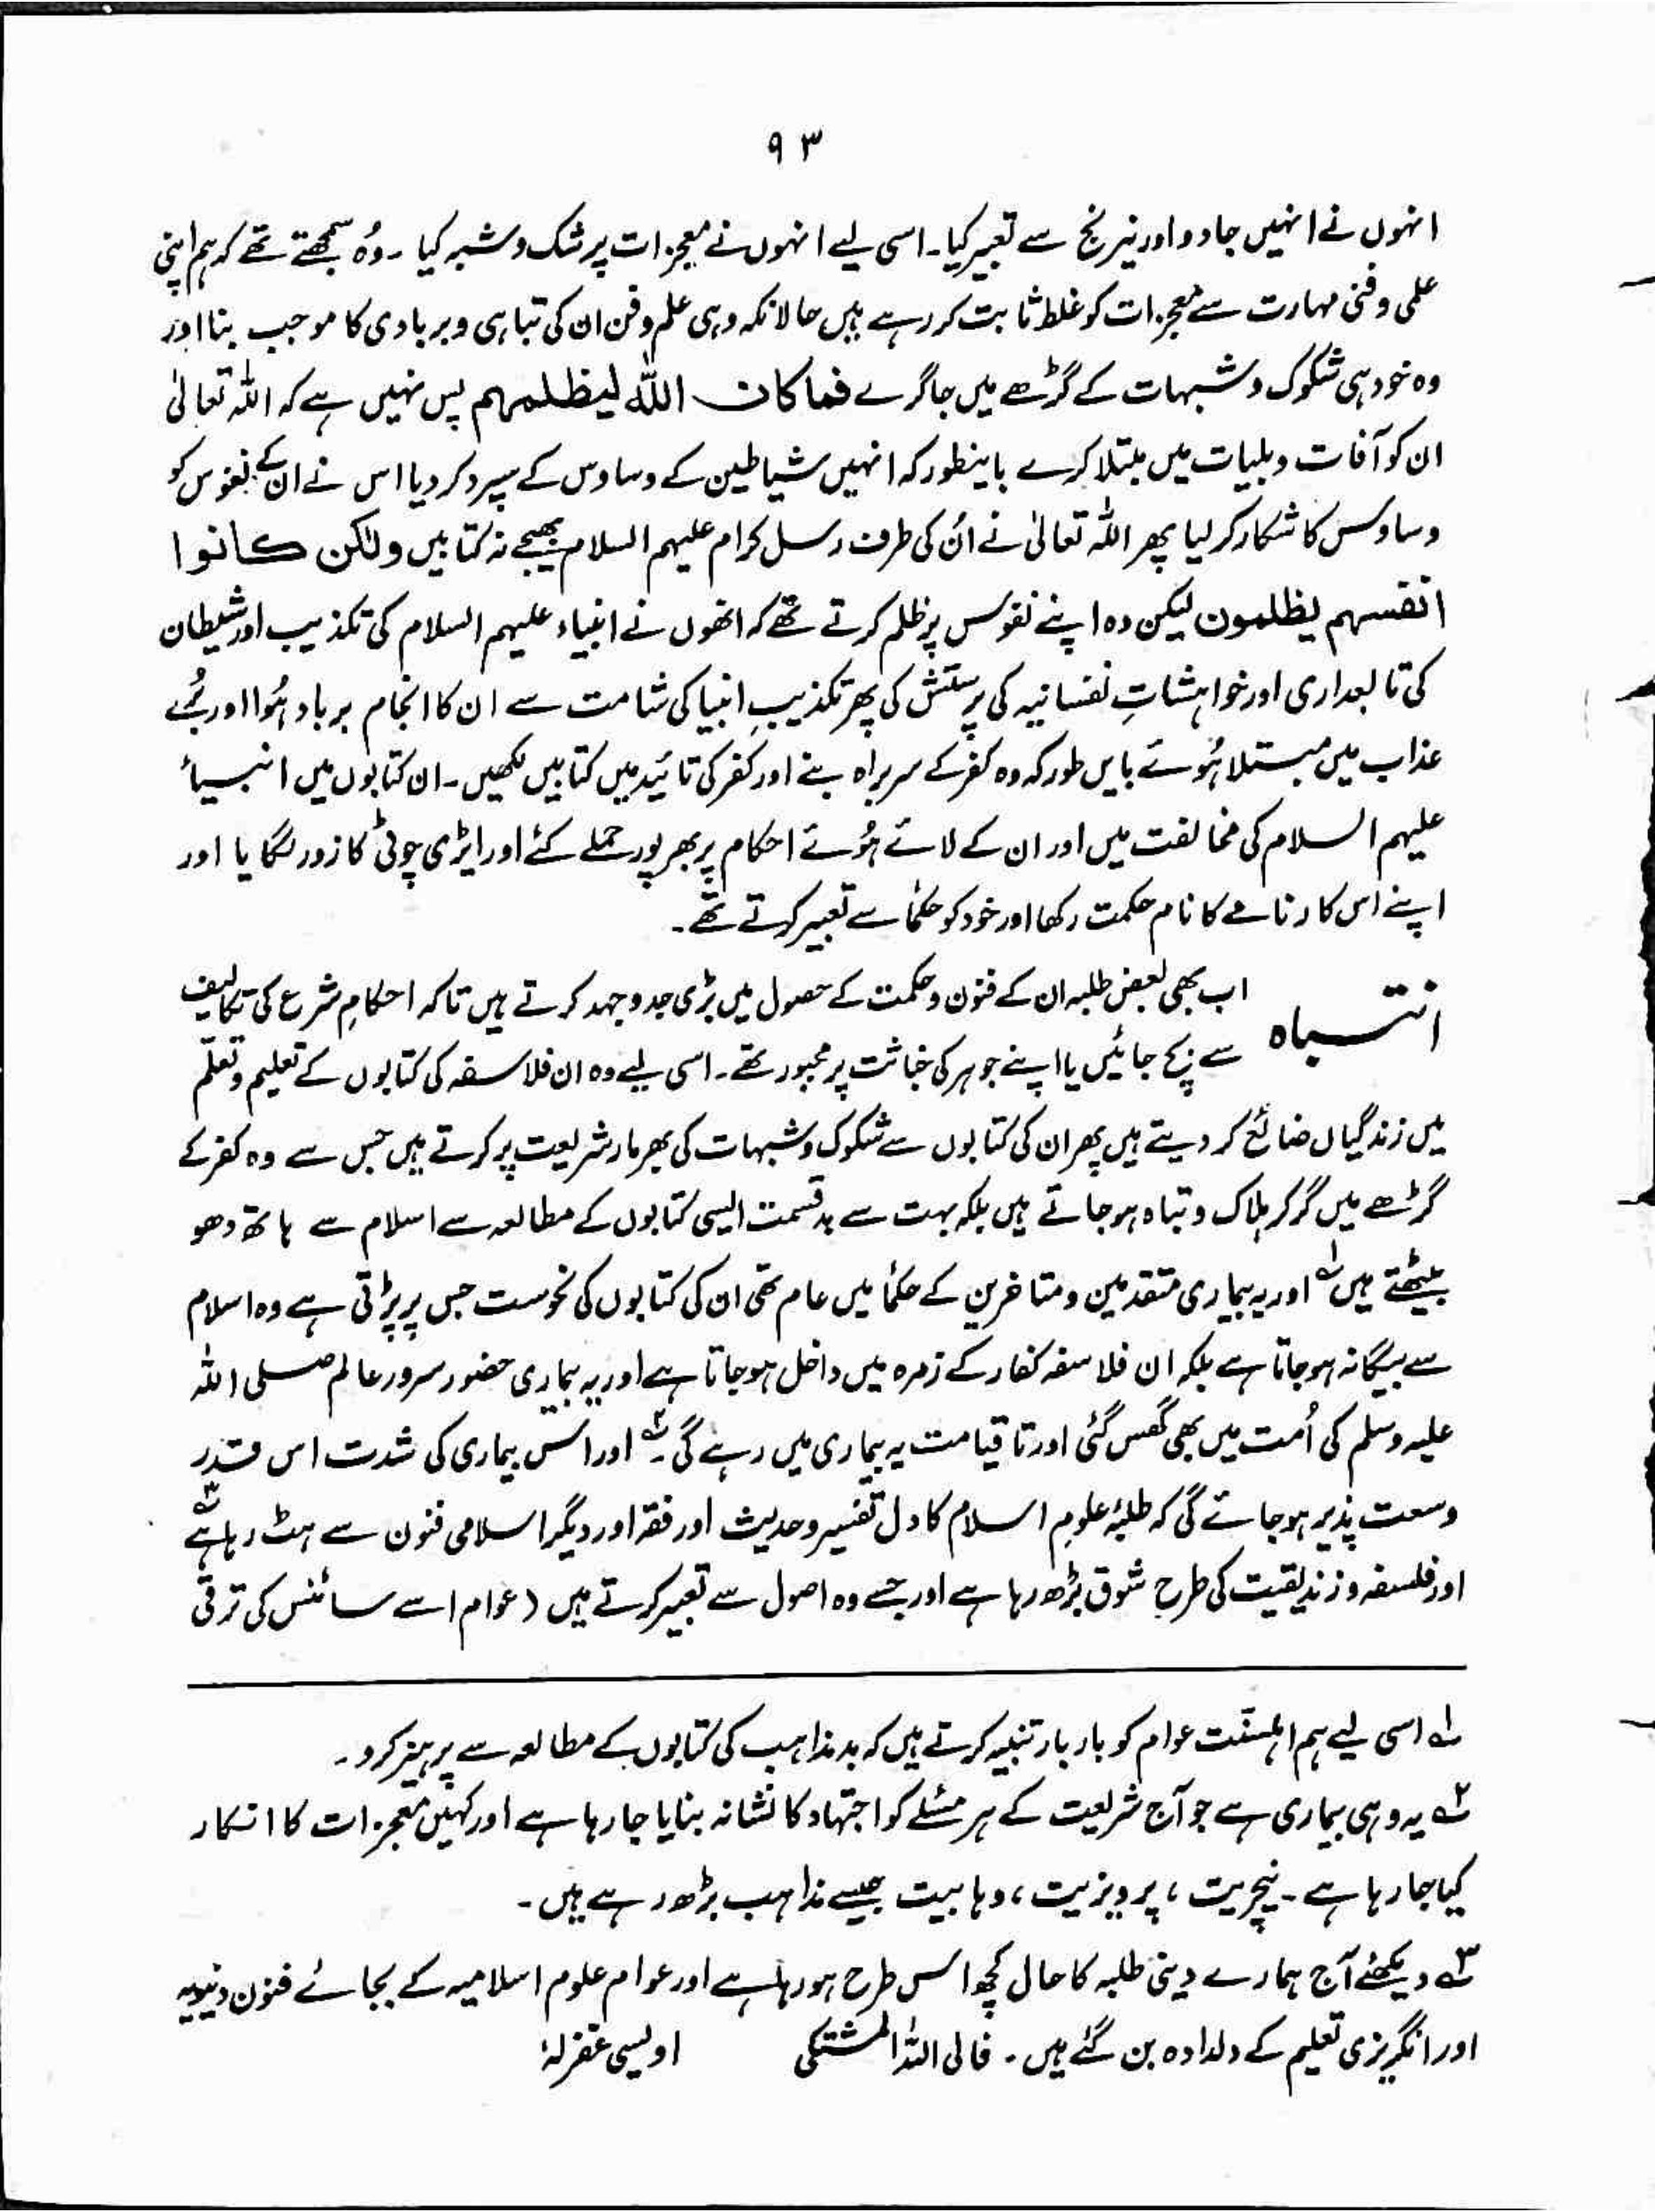 ۹۳
انہوں نے انہیں جادو اور نیرنج سے تعبیر کیا۔ اسی لیے انہوں نے معجزات پر شک و شبہ کیا ۔ وُہ سمجھتے تھے کہ ہم اپنی
علمی و فنی مہارت سے معجزات کو غلط ثابت کر رہے ہیں حالانکہ وہی علم و فن ان کی تباہی و بربادی کا موجب بنا اور
وہ خود ہی شکوک و شبہات کے گڑھے میں جا گرے فما کان اللّٰہ لیظلمہم پس نہیں ہے کہ اللہ تعالیٰ
ان کو آفات و بلیات میں مبتلا کرے باینطور کہ انہیں شیاطین کے وساوس کے سپرد کر دیا اس نے ان کے نفوس کو
وساوس کا شکار کر لیا پھر اللہ تعالیٰ نے اُن کی طرف رسل کرام علیہم السلام بھیجے نہ کتابیں ولٰکن کانوا
انفسہم یظلمون لیکن وہ اپنے نفوس پر ظلم کرتے تھے کہ انھوں نے انبیاء علیہم السلام کی تکذیب اور شیطان
کی تابعداری اور خواہشاتِ نفسانیہ کی پرستش کی پھر تکذیبِ انبیا کی شامت سے ان کا انجام برباد ہُوا اور بُرے
عذاب میں مبتلا ہُوئے بایں طور کہ وہ کفر کے سربراہ بنے اور کفر کی تائید میں کتابیں لکھیں۔ ان کتابوں میں انبیاء
علیہم السلام کی مخالفت میں اور ان کے لائے ہُوئے احکام پر بھرپور حملے کئے اور ایڑی چوٹی کا زور لگایا اور
اپنے اس کارنامے کا نام حکمت رکھا اور خود کو حکمأ سے تعبیر کرتے تھے۔
انتباہ اب بھی بعض طلبہ ان کے فنون و حکمت کے حصول میں بڑی جدوجہد کرتے ہیں تاکہ احکامِ شرع کی تکالیف
سے بچ جائیں یا اپنے جوہر کی خباثت پر مجبور تھے۔ اسی لیے وہ ان فلاسفہ کی کتابوں کے تعلیم و تعلّم
میں زندگیاں ضائع کر دیتے ہیں پھر ان کی کتابوں سے شکوک و شبہات کی بھرمار شریعت پر کرتے ہیں جس سے وہ کفر کے
گڑھے میں گر کر ہلاک و تباہ ہو جاتے ہیں بلکہ بہت سے بدقسمت ایسی کتابوں کے مطالعہ سے اسلام سے ہاتھ دھو
بیٹھتے ہیں ۱؎ اور یہ بیماری متقدمین و متاخرین کے حکمأ میں عام تھی ان کی کتابوں کی نحوست جس پر پڑتی ہے وہ اسلام
سے بیگانہ ہو جاتا ہے بلکہ ان فلاسفہ کفار کے زمرہ میں داخل ہو جاتا ہے اور یہ بیماری حضور سرور عالم صلی اللہ
علیہ وسلم کی اُمت میں بھی گھس گئی اور تا قیامت یہ بیماری میں رہے گی ۲؎ اور اس بیماری کی شدت اس قدر
وسعت پذیر ہو جائے گی کہ طلبۂ علومِ اسلام کا دل تفسیر و حدیث اور فقہ اور دیگر اسلامی فنون سے ہٹ رہا ہے ۳؎
اور فلسفہ و زندیقیت کی طرح شوق بڑھ رہا ہے اور جسے وہ اصول سے تعبیر کرتے ہیں (عوام اسے سائنس کی ترقی
۱؎ اسی لیے ہم اہلسنّت عوام کو بار بار تنبیہ کرتے ہیں کہ بد مذاہب کی کتابوں کے مطالعہ سے پرہیز کرو۔
۲؎ یہ وہی بیماری ہے جو آج شریعت کے ہر مسئلے کو اجتہاد کا نشانہ بنایا جا رہا ہے اور کہیں معجزات کا انکار
کیا جا رہا ہے ۔ نیچریت ، پرویزیت ، وہابیت جیسے مذاہب بڑھ رہے ہیں ۔
۳؎ دیکھئے آج ہمارے دینی طلبہ کا حال کچھ اس طرح ہو رہا ہے اور عوام علوم اسلامیہ کے بجائے فنون دنیویہ
اور انگریزی تعلیم کے دلدادہ بن گئے ہیں ۔ فالی اللّٰہ المشتکی اویسی غفرلہٗ